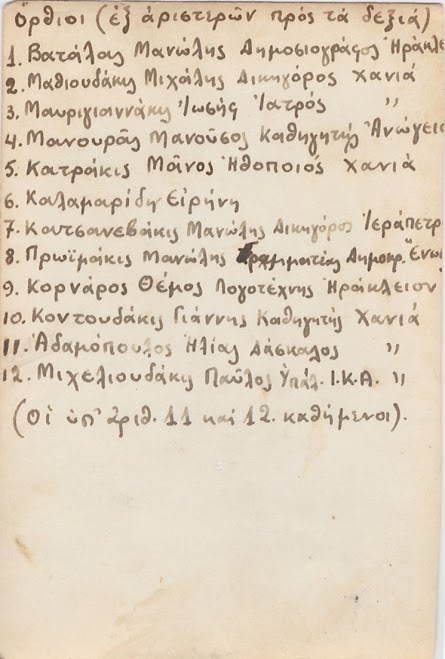 Ὄρθιοι (ἐξ ἀριστερῶν πρός τά δεξιά)
1. Βατάλας Μανώλης Δημοσιογράφος Ἡράκλε
2. Μαθιουδάκης Μιχάλης Δικηγόρος Χανιά
3. Μαυριγιαννάκη Ἰωσήφ Ἰατρός "
4. Μανουρᾶς Μανοῦσος Καθηγητής Ἀνώγεια
5. Κατράκις Μᾶνος Ἠθοποιός Χανιά
6. Καλαμαρίδη Εἰρήνη
7. Κουτσανεβάκις Μανώλης Δικηγόρος Ἱεράπετρ
8. Πρωϊμάκις Μανώλης Γραμματέας Δημοκρ. Ἑνω
9. Κορνάρος Θέμος Λογοτέχνης Ἡράκλειον
10. Κοντουδάκις Γιάννης Καθηγητής Χανιά
11. Ἀδαμόπουλος Ἠλίας Δάσκαλος "
12. Μιχελιουδάκις Παῦλος Ὑπάλ. Ι.Κ.Α. "
(Οἱ ὑπ' ἀριθ. 11 καί 12. καθήμενοι).